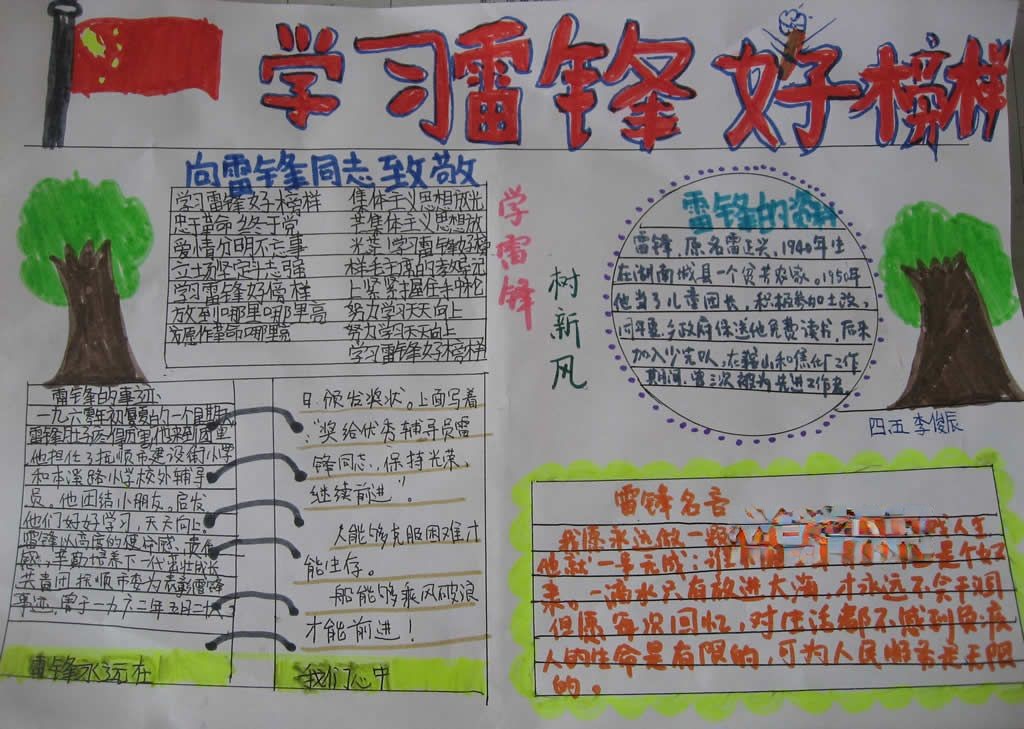 学习雷锋 好榜样
向雷锋同志致敬
学习雷锋好榜样
忠于革命终于党
爱憎分明不忘事
立场坚定斗志强
学习雷锋好榜样
放到哪里哪里高
愿作革命哪里高
集体主义思想放光
芒集体主义思想放
光芒!学习雷锋好榜
样毛主席的教导记
上紧紧握住手中枪
努力学习天天向上
努力学习天天向上
学习雷锋好榜样
学雷锋
树新风
雷锋的资料
雷锋,原名雷正兴,1940年生
在湖南城县一个贫苦农家。1950年
他当了儿童团长,积极参加土改,
同年夏乡政府保送他免费读书,后来
加入少先队,在鞍山和焦化厂工作
期间,曾三次被为先进工作者
四.五 李俊辰
雷锋的事迹
一九六零年初夏的一个星期
雷锋肚子疼
他担任了抚顺市建设街小学
和本溪路小学校外辅导
员。他团结小朋友。启发
他们好好学习,天天向上
雷锋以高度的使命感,责任
感,辛勤培养下一代茁壮成长
共青团抚顺市委为表彰雷锋
事迹,曾于一九六二年五月二拾
雷锋永远在
日.颁发奖状。上面写着
:"奖给优秀辅导员雷
锋同志,保持光荣,
继续前进"。
人能够克服困难才
能生存。
船能够乘风破浪
才能前进!
我们心中
雷锋名言
我愿永远做一颗
人生
也是个好
来。一滴水只有放进大海,才永远不会干涸
但愿每次回忆,对生活都不感到负疚
人的生命是有限的,可为人民服务是无限
的。